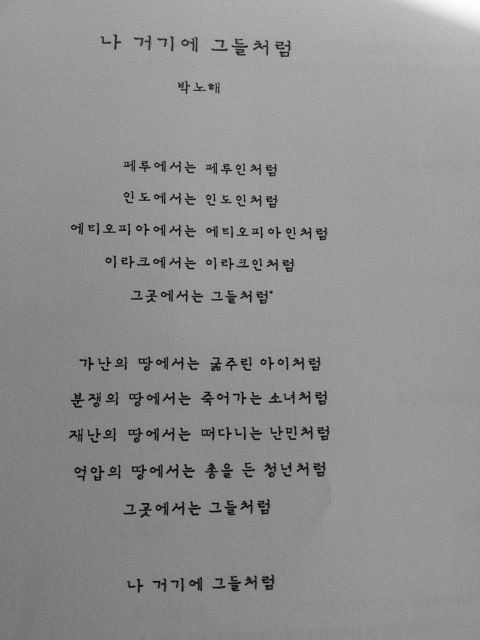 나 거기에 그들처럼
박노해
페루에서는 페루인처럼
인도에서는 인도인처럼
에티오피아에서는 에티오피아인처럼
이라크에서는 이라크인처럼
그곳에서는 그들처럼*
가난의 땅에서는 굶주린 아이처럼
분쟁의 땅에서는 죽어가는 소녀처럼
재난의 땅에서는 떠다니는 난민처럼
억압의 땅에서는 총을 든 청년처럼
그곳에서는 그들처럼
나 거기에 그들처럼